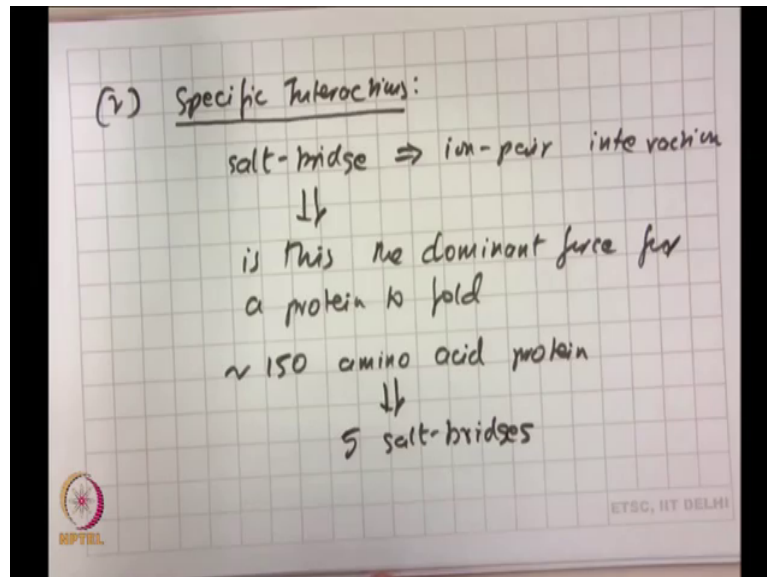 (2) Specific Interactions:
salt-bridge ⇒ ion-pair interaction
⇓
is this the dominant force for
a protein to fold
~ 150 amino acid protein
⇓
5 salt-bridges
ETSC, IIT DELHI
NPTEL